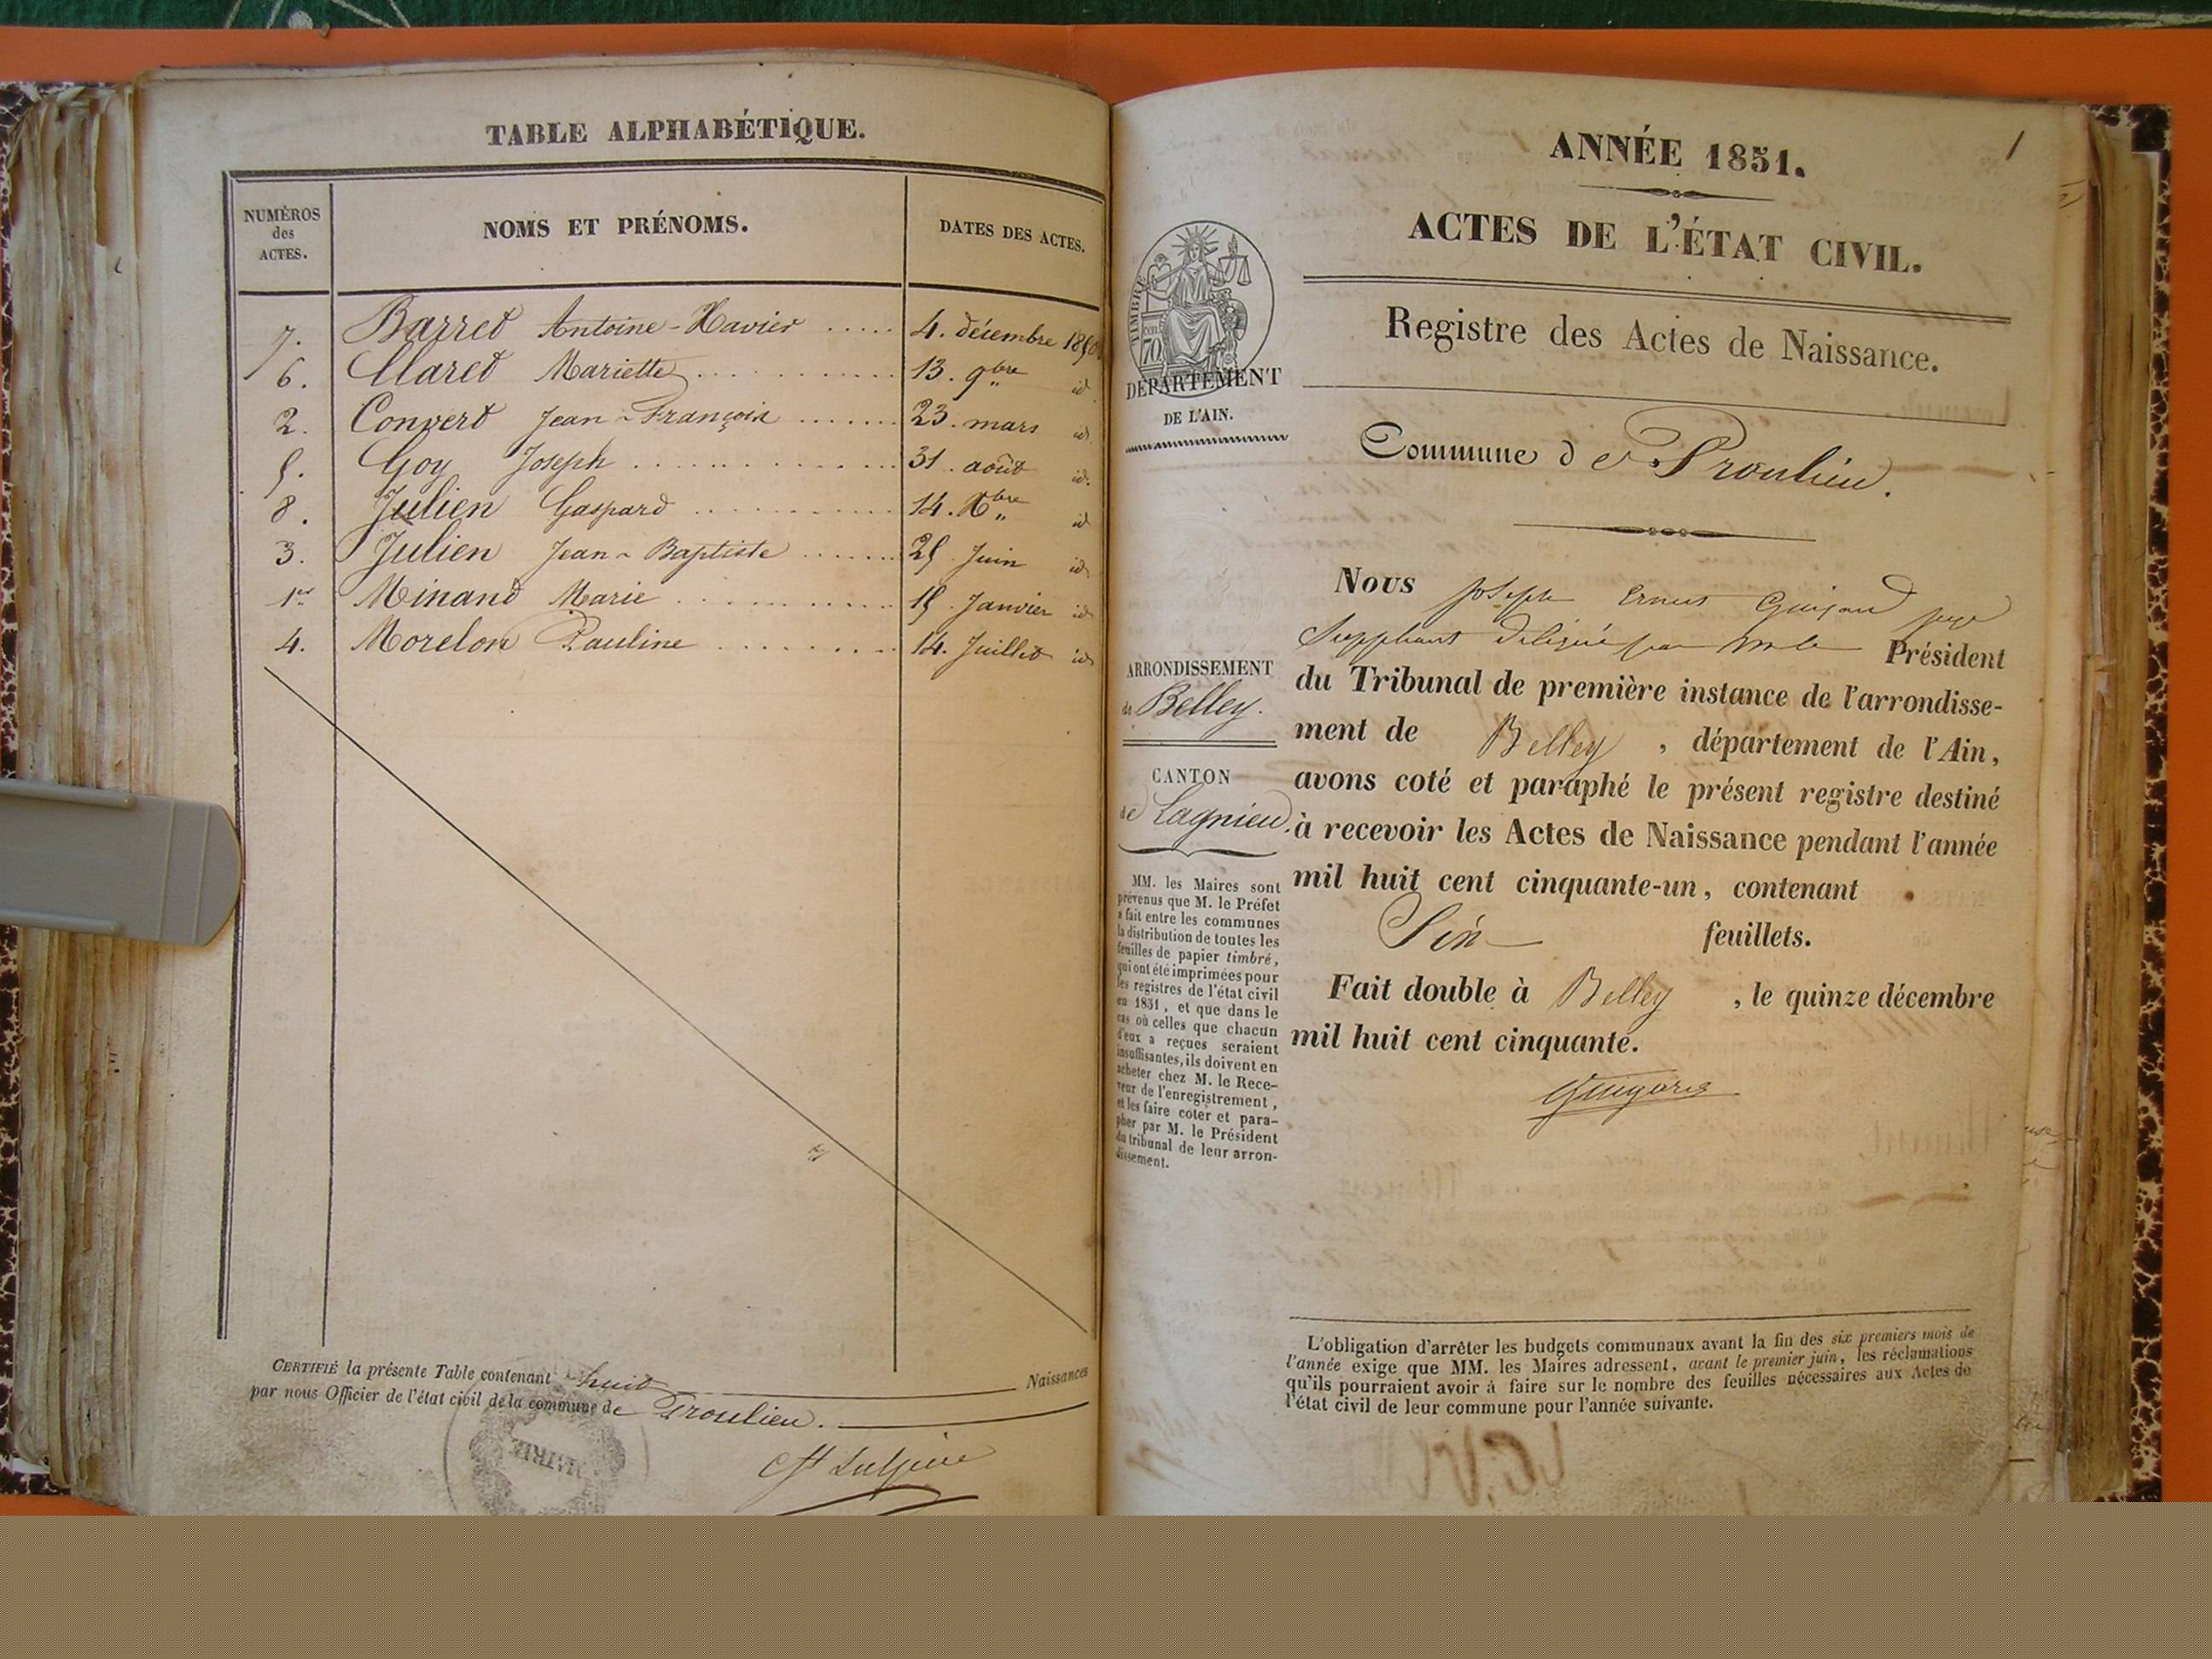 TABLE ALPHABÉTIQUE.
NUMÉROS des ACTES.
NOMS ET PRÉNOMS.
DATES DES ACTES.
7. Barret Antoine-Xavier ..... 4. décembre 1850
6. Claret Mariette .......... 13. 9bre id
2. Convert Jean-François ....... 23. mars id
5. Goy Joseph ............. 31. août id.
8. Julien Gaspard .......... 14. Xbre id
3. Julien Jean-Baptiste ...... 25 Juin id
1er Minand Marie .......... 15 Janvier id
4. Morelon Pauline ........ 14. Juillet id
CERTIFIÉ la présente Table contenant huit Naissances
par nous Officier de l'état civil de la commune de Proulieu.
MAIRIE
1
ANNÉE 1851.
ACTES DE L'ÉTAT CIVIL.
Registre des Actes de Naissance.
TIMBRE
70 cen
DÉPARTEMENT
DE L'AIN.
Commune de Proulieu.
Nous Joseph Ernest juge
Suppléant délégué par Mr le Président
du Tribunal de première instance de l'arrondisse-
ment de Belley, département de l'Ain,
avons coté et paraphé le présent registre destiné
à recevoir les Actes de Naissance pendant l'année
mil huit cent cinquante-un, contenant
Six feuillets.
Fait double à Belley, le quinze décembre
mil huit cent cinquante.
ARRONDISSEMENT
de Belley.
CANTON
de Lagnieu.
MM. les Maires sont
prévenus que M. le Préfet
a fait entre les communes
la distribution de toutes les
feuilles de papier timbré,
qui ont été imprimées pour
les registres de l'état civil
en 1851, et que dans le
cas où celles que chacun
d'eux a reçues seraient
insuffisantes, ils doivent en
acheter chez M. le Rece-
veur de l'enregistrement,
et les faire coter et para-
pher par M. le Président
du tribunal de leur arron-
dissement.
L'obligation d'arrêter les budgets communaux avant la fin des six premiers mois de
l'année exige que MM. les Maires adressent, avant le premier juin, les réclamations
qu'ils pourraient avoir à faire sur le nombre des feuilles nécessaires aux Actes de
l'état civil de leur commune pour l'année suivante.